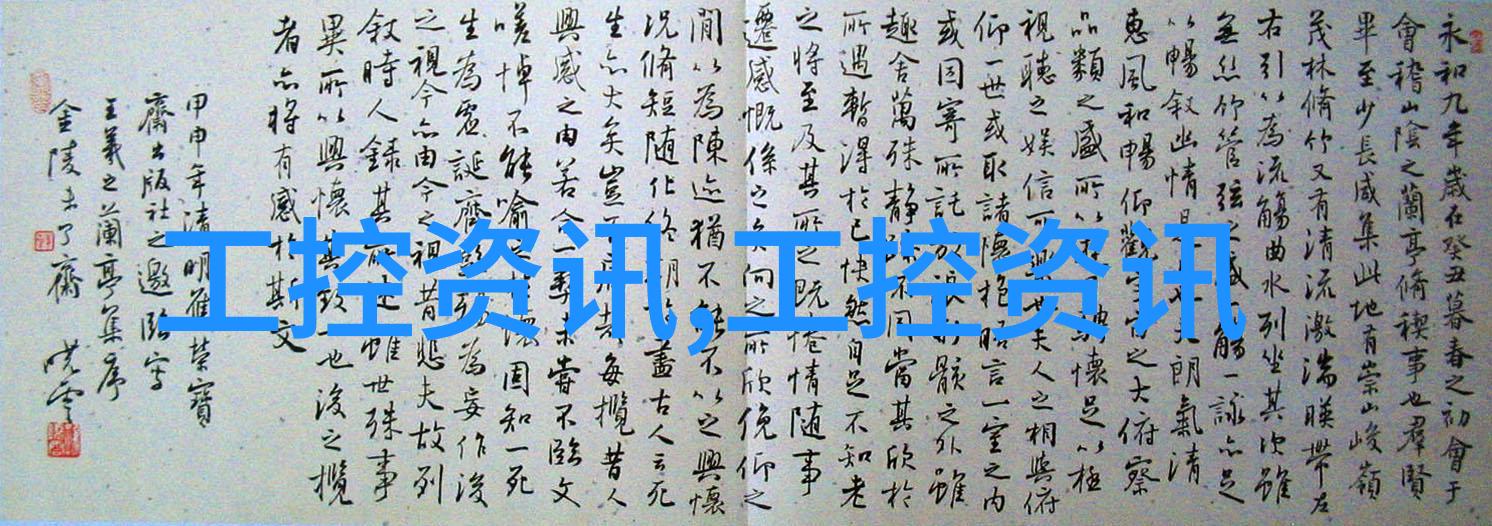 永和九年歲在癸丑暮春之初會于
會稽山陰之蘭亭脩稧事也羣賢
畢至少長咸集此地有崇山峻嶺
茂林脩竹又有清流激湍暎帶左
右引以為流觴曲水列坐其次雖
無絲竹管弦之盛一觴一詠亦足
以暢叙幽情是日也天朗氣清
惠風和暢仰觀宇宙之大俯察
品類之盛所以騁懷足以極
視聽之娛信可樂也夫人之相與俯
仰一世或取諸懷抱晤言一室之內
或因寄所託放浪形骸之外雖
趣舍萬殊静躁不同當其欣於
所遇暫得於己快然自足不知老
之將至及其所之既惓情随事
遷感慨係之矣向之所欣俛仰之
閒以為陳迹猶不能不以之興懷
況脩短随化終期於盡古人云死
生亦大矣豈不痛哉每攬昔人
興感之由若合一契未嘗不臨文
嗟悼不能喻之於懷固知一死
生為虛誕齊彭殤為妄作後
之視今亦由今之視昔悲夫故列
叙時人錄其所述雖世殊事
異所以興懷其致一也後之攬
者亦將有感於斯文
甲申年清明雁榮寶
齋出版社之邀臨寫
王羲之蘭亭集序
金陵未了齋 曉雲
工控资讯,工控资讯